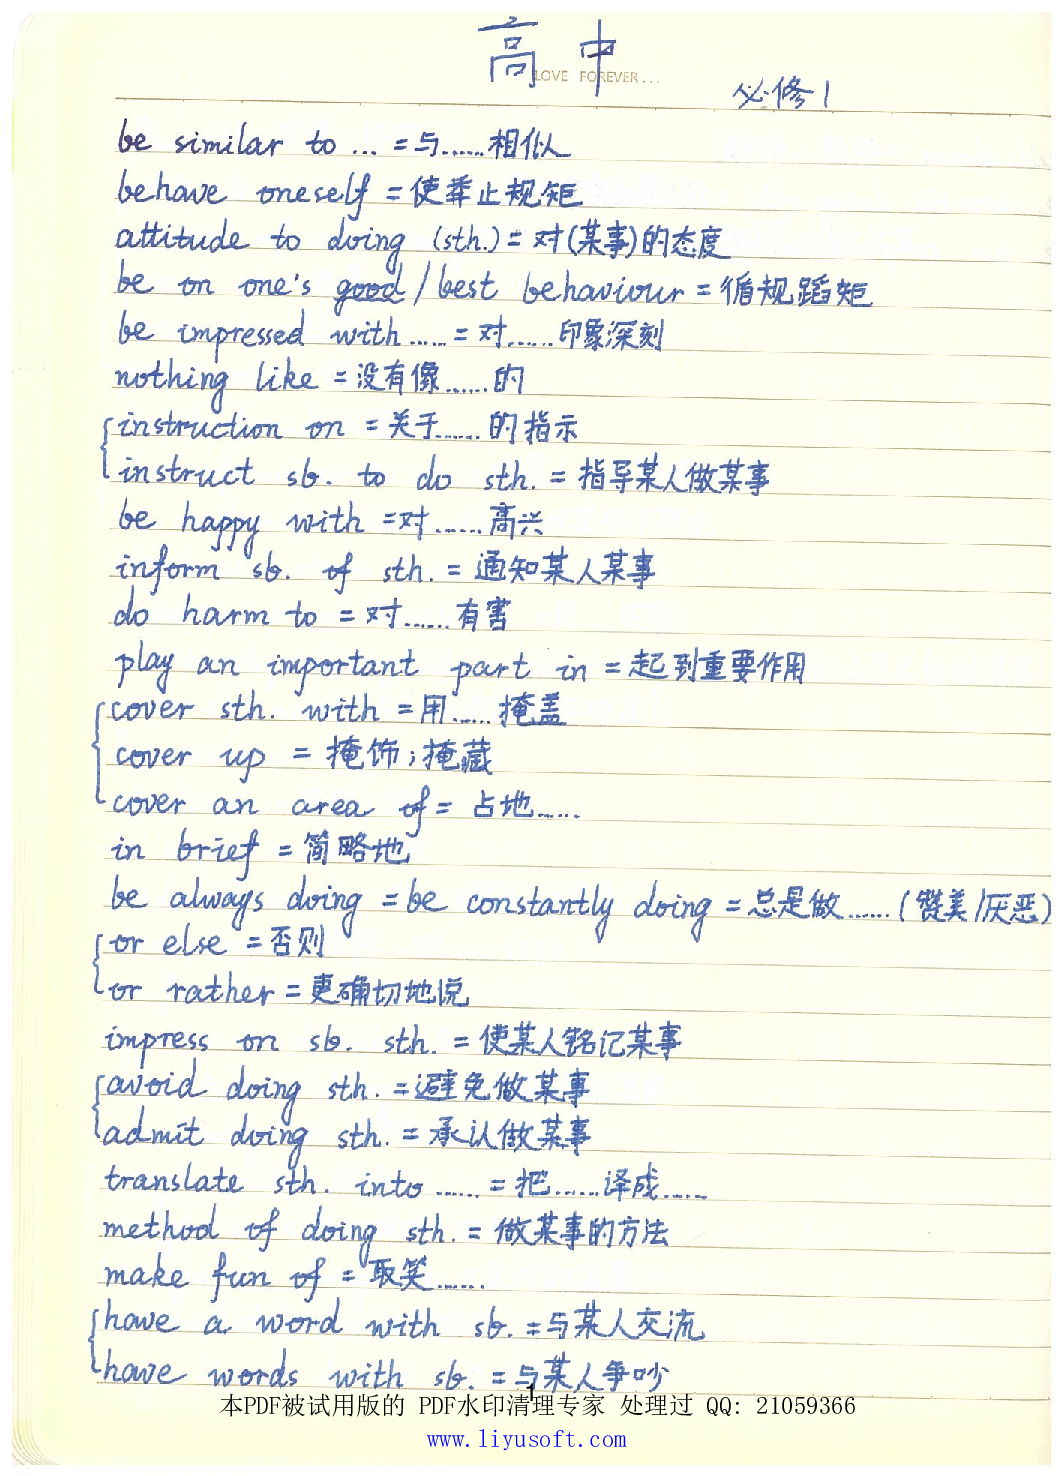 高中
LOVE FOREVER...
必修1
be similar to ... =与......相似
behave oneself =使举止规矩
attitude to doing (sth.)=对(某事)的态度
be on one's good/best behaviour=循规蹈矩
be impressed with ......=对......印象深刻
nothing like =没有像......的
instruction on =关于......的指示
instruct sb. to do sth. =指导某人做某事
be happy with =对......高兴
inform sb. of sth. =通知某人某事
do harm to =对......有害
play an important part in =起到重要作用
cover sth. with =用......掩盖
cover up =掩饰;掩藏
cover an area of= 占地......
in brief =简略地
be always doing =be constantly doing =总是做......(赞美/厌恶)
or else =否则
or rather=更确切地说
impress on sb. sth. =使某人铭记某事
avoid doing sth. =避免做某事
admit doing sth. =承认做某事
translate sth. into ......=把......译成......
method of doing sth. =做某事的方法
make fun of =取笑......
have a word with sb. =与某人交流
have words with sb. =与某人争吵
1
本PDF被试用版的 PDF水印清理专家 处理过 QQ: 21059366
www.liyusoft.com